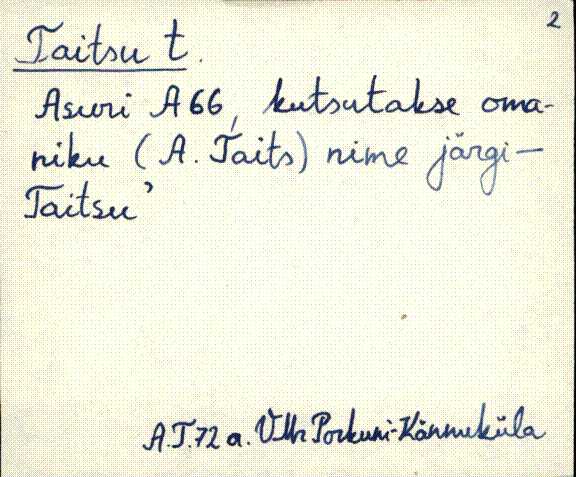 2
Taitsu t.
Asuri A66, kutsutakse oma-
niku (A. Taits) nime järgi —
Taitsu'
A.T. 72 a. VMr Porkuni-Kännuküla